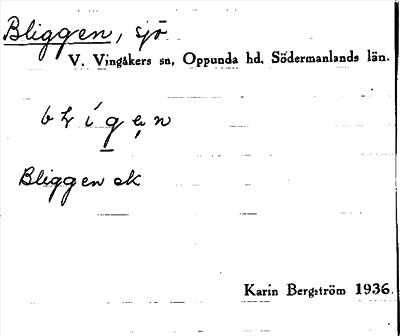 Bliggen, sjö
V. Vingåkers sn, Oppunda hd, Södermanlands län.
Bliggen ek
Karin Bergström 1936.